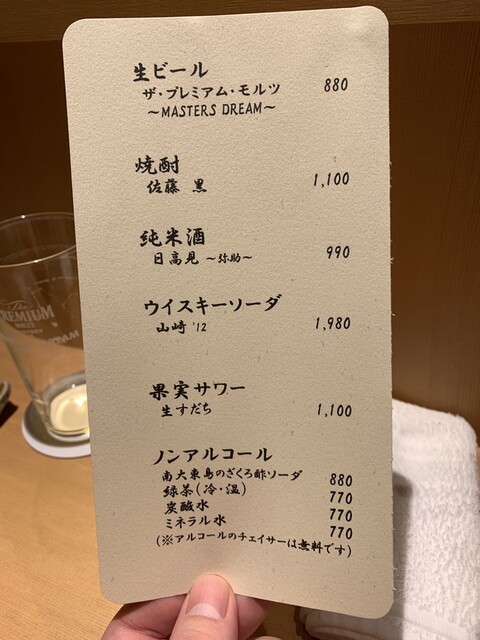 生ビール
ザ・プレミアム・モルツ 880
～MASTERS DREAM～
焼酎
佐藤 黒 1,100
純米酒
日高見 ～弥助～ 990
ウイスキーソーダ
山崎 '12 1,980
果実サワー
生すだち 1,100
ノンアルコール
南大東島のざくろ酢ソーダ 880
緑茶(冷・温) 770
炭酸水 770
ミネラル水 770
(※アルコールのチェイサーは無料です)
The
PREMIUM
MALT'S